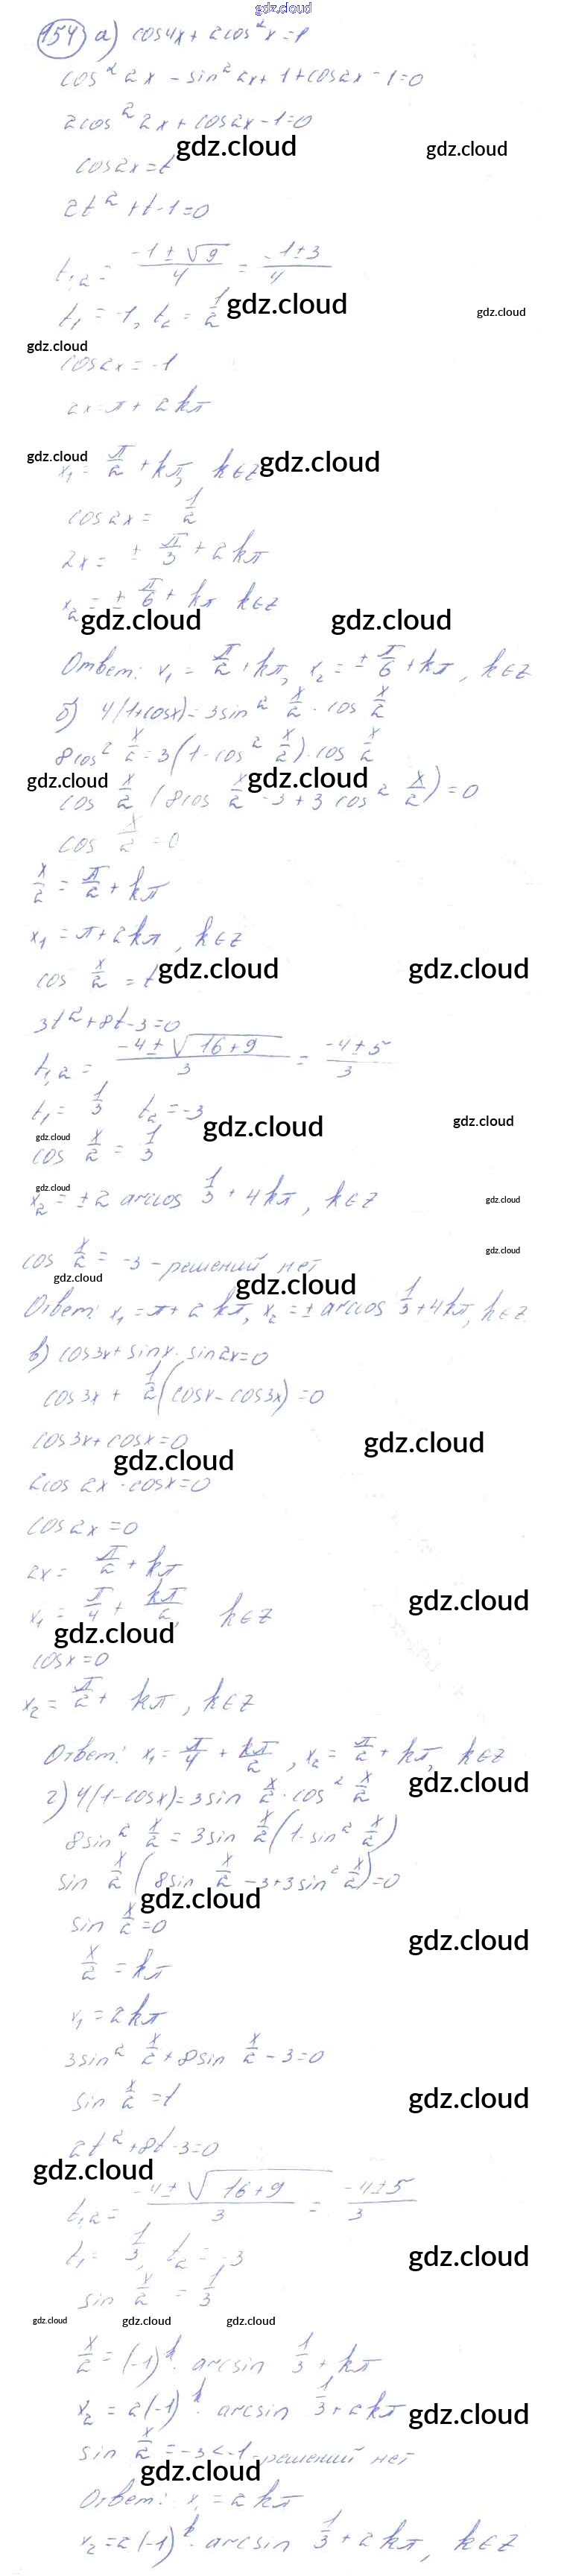 gdz.cloud
154 а) cos4x + 2cos²x = 1
cos²2x - sin²2x + 1 + cos2x - 1 = 0
2cos²2x + cos2x - 1 = 0
gdz.cloud gdz.cloud
cos2x = t
2t² + t - 1 = 0
t₁,₂ = (-1 ± √9)/4 = (-1 ± 3)/4
t₁ = -1, t₂ = 1/2 gdz.cloud gdz.cloud
gdz.cloud
cos2x = -1
2x = π + 2kπ
gdz.cloud
x₁ = π/2 + kπ, k∈Z gdz.cloud
cos2x = 1/2
2x = ± π/3 + 2kπ
x₂ = ± π/6 + kπ k∈Z
gdz.cloud gdz.cloud
Ответ: x₁ = π/2 + kπ, x₂ = ± π/6 + kπ, k∈Z
б) 4(1+cosx) = 3sin² x/2 · cos x/2
8cos² x/2 = 3(1 - cos² x/2) · cos x/2
gdz.cloud gdz.cloud
cos x/2 (8cos x/2 - 3 + 3cos² x/2) = 0
cos x/2 = 0
x/2 = π/2 + kπ
x₁ = π + 2kπ, k∈Z
cos x/2 = t gdz.cloud gdz.cloud
3t² + 8t - 3 = 0
t₁,₂ = (-4 ± √16+9)/3 = (-4 ± 5)/3
t₁ = 1/3 t₂ = -3 gdz.cloud gdz.cloud
gdz.cloud
cos x/2 = 1/3
gdz.cloud
x₂ = ±2 arccos 1/3 + 4kπ, k∈Z gdz.cloud
gdz.cloud
cos x/2 = -3 - решений нет
gdz.cloud gdz.cloud
Ответ: x₁ = π + 2kπ, x₂ = ± arccos 1/3 + 4kπ, k∈Z
в) cos3x + sinx · sin2x = 0
cos3x + 1/2 (cosx - cos3x) = 0
cos3x + cosx = 0 gdz.cloud
gdz.cloud
2cos2x · cosx = 0
cos2x = 0
2x = π/2 + kπ
x₁ = π/4 + kπ/2, k∈Z gdz.cloud
gdz.cloud
cosx = 0
x₂ = π/2 + kπ, k∈Z
Ответ: x₁ = π/4 + kπ/2, x₂ = π/2 + kπ, k∈Z
gdz.cloud
г) 4(1-cosx) = 3sin x/2 · cos² x/2
8sin² x/2 = 3sin x/2 (1 - sin² x/2)
sin x/2 (8sin x/2 - 3 + 3sin² x/2) = 0
gdz.cloud
sin x/2 = 0
gdz.cloud
x/2 = kπ
x₁ = 2kπ
3sin² x/2 + 8sin x/2 - 3 = 0
sin x/2 = t gdz.cloud
2t² + 8t - 3 = 0
gdz.cloud
t₁,₂ = (-4 ± √16+9)/3 = (-4 ± 5)/3
t₁ = 1/3, t₂ = -3 gdz.cloud
sin x/2 = 1/3
gdz.cloud gdz.cloud gdz.cloud
x/2 = (-1)ᵏ · arcsin 1/3 + kπ
x₂ = 2(-1)ᵏ · arcsin 1/3 + 2kπ gdz.cloud
sin x/2 = -3 < -1 - решений нет
gdz.cloud
Ответ: x₁ = 2kπ
x₂ = 2(-1)ᵏ · arcsin 1/3 + 2kπ, k∈Z